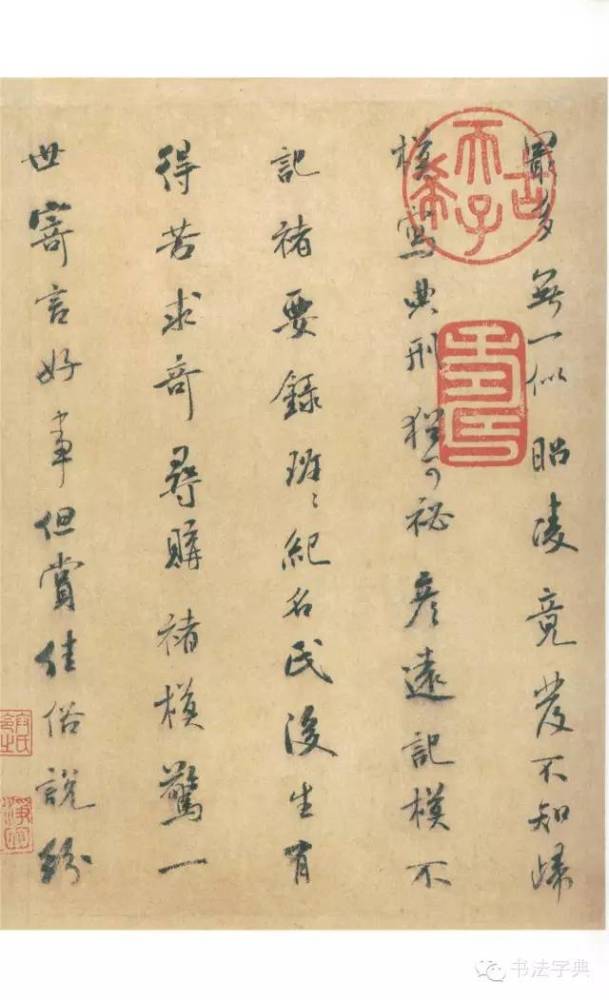 最多無一似昭陵竟發不知歸
模寫典刑猶可祕彥遠記模不
記褚要錄班〻紀名氏後生有
得苦求奇尋購褚模驚一
世寄言好事但賞佳俗說紛
古希天子
壽
书法字典